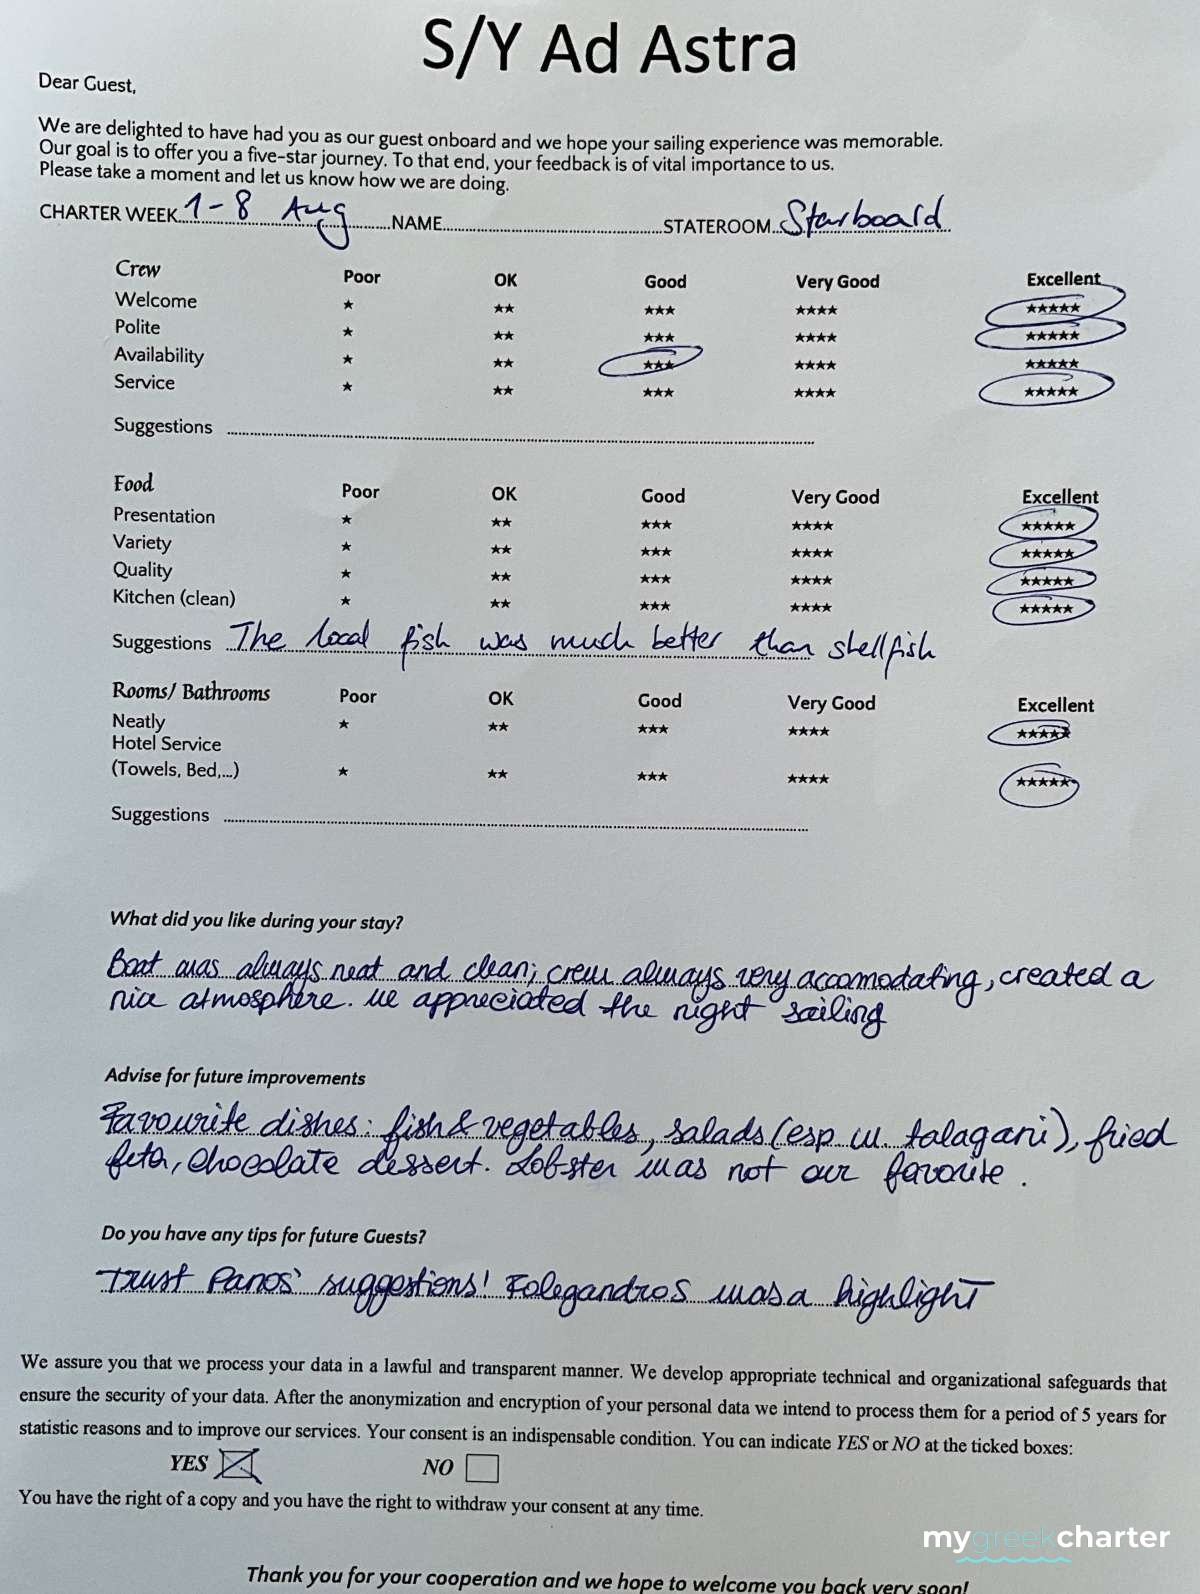 S/Y Ad Astra
Dear Guest,
We are delighted to have had you as our guest onboard and we hope your sailing experience was memorable.
Our goal is to offer you a five-star journey. To that end, your feedback is of vital importance to us.
Please take a moment and let us know how we are doing.
CHARTER WEEK 1-8 Aug NAME STATEROOM Starboard
Crew Poor OK Good Very Good Excellent
Welcome ★ ★★ ★★★ ★★★★ ★★★★★
Polite ★ ★★ ★★★ ★★★★ ★★★★★
Availability ★ ★★ ★★★ ★★★★ ★★★★★
Service ★ ★★ ★★★ ★★★★ ★★★★★
Suggestions
Food Poor OK Good Very Good Excellent
Presentation ★ ★★ ★★★ ★★★★ ★★★★★
Variety ★ ★★ ★★★ ★★★★ ★★★★★
Quality ★ ★★ ★★★ ★★★★ ★★★★★
Kitchen (clean) ★ ★★ ★★★ ★★★★ ★★★★★
Suggestions The local fish was much better than shellfish
Rooms/ Bathrooms Poor OK Good Very Good Excellent
Neatly ★ ★★ ★★★ ★★★★ ★★★★★
Hotel Service
(Towels, Bed,...) ★ ★★ ★★★ ★★★★ ★★★★★
Suggestions
What did you like during your stay?
Boat was always neat and clean; crew always very accomodating, created a
nice atmosphere. We appreciated the night sailing
Advise for future improvements
Favourite dishes: fish & vegetables, salads (esp w. talagani), fried
feta, chocolate dessert. Lobster was not our favorite.
Do you have any tips for future Guests?
Trust Panos' suggestions! Folegandros was a highlight
We assure you that we process your data in a lawful and transparent manner. We develop appropriate technical and organizational safeguards that
ensure the security of your data. After the anonymization and encryption of your personal data we intend to process them for a period of 5 years for
statistic reasons and to improve our services. Your consent is an indispensable condition. You can indicate YES or NO at the ticked boxes:
YES NO
You have the right of a copy and you have the right to withdraw your consent at any time.
mygreekcharter
Thank you for your cooperation and we hope to welcome you back very soon!